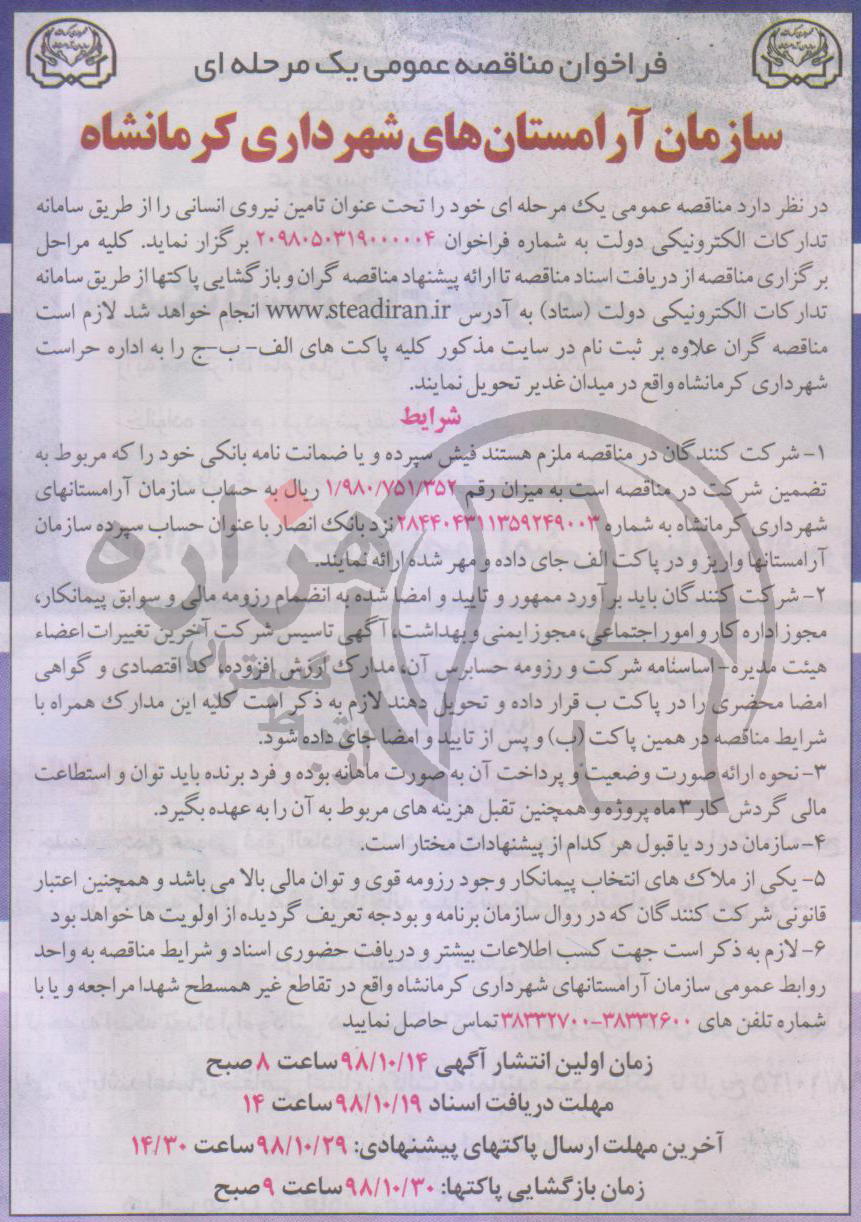 فراخوان مناقصه عمومی یک مرحله ای
سازمان آرامستان‌های شهرداری کرمانشاه
در نظر دارد مناقصه عمومی یک مرحله ای خود را تحت عنوان تامین نیروی انسانی را از طریق سامانه
تدارکات الکترونیکی دولت به شماره فراخوان ۲۰۹۸۰۵۰۳۱۹۰۰۰۰۰۴ برگزار نماید. کلیه مراحل
برگزاری مناقصه از دریافت اسناد مناقصه تا ارائه پیشنهاد مناقصه گران و بازگشایی پاکتها از طریق سامانه
تدارکات الکترونیکی دولت (ستاد) به آدرس www.steadiran.ir انجام خواهد شد لازم است
مناقصه گران علاوه بر ثبت نام در سایت مذکور کلیه پاکت های الف- ب-ج را به اداره حراست
شهرداری کرمانشاه واقع در میدان غدیر تحویل نمایند.
شرایط
۱- شرکت کنندگان در مناقصه ملزم هستند فیش سپرده و یا ضمانت نامه بانکی خود را که مربوط به
تضمین شرکت در مناقصه است به میزان رقم ۱/۹۸۰/۷۵۱/۳۵۲ ریال به حساب سازمان آرامستانهای
شهرداری کرمانشاه به شماره ۲۸۴۴۰۴۳۱۱۳۵۹۲۴۹۰۰۳ نزد بانک انصار با عنوان حساب سپرده سازمان
آرامستانها واریز و در پاکت الف جای داده و مهر شده ارائه نمایند.
۲- شرکت کنندگان باید برآورد ممهور و تایید و امضا شده به انضمام رزومه مالی و سوابق پیمانکار،
مجوز اداره کار و امور اجتماعی، مجوز ایمنی و بهداشت، آگهی تاسیس شرکت آخرین تغییرات اعضاء
هیئت مدیره- اساسنامه شرکت و رزومه حسابرس آن، مدارک ارزش افزوده، کد اقتصادی و گواهی
امضا محضری را در پاکت ب قرار داده و تحویل دهند لازم به ذکر است کلیه این مدارک همراه با
شرایط مناقصه در همین پاکت (ب) و پس از تایید و امضا جای داده شود.
۳- نحوه ارائه صورت وضعیت و پرداخت آن به صورت ماهانه بوده و فرد برنده باید توان و استطاعت
مالی گردش کار ۳ ماه پروژه و همچنین تقبل هزینه های مربوط به آن را به عهده بگیرد.
۴- سازمان در رد یا قبول هر کدام از پیشنهادات مختار است.
۵- یکی از ملاک های انتخاب پیمانکار وجود رزومه قوی و توان مالی بالا می باشد و همچنین اعتبار
قانونی شرکت کنندگان که در روال سازمان برنامه و بودجه تعریف گردیده از اولویت ها خواهد بود
۶- لازم به ذکر است جهت کسب اطلاعات بیشتر و دریافت حضوری اسناد و شرایط مناقصه به واحد
روابط عمومی سازمان آرامستانهای شهرداری کرمانشاه واقع در تقاطع غیر همسطح شهدا مراجعه و یا با
شماره تلفن های ۳۸۳۳۲۶۰۰-۳۸۳۳۲۷۰۰ تماس حاصل نمایید
زمان اولین انتشار آگهی ۹۸/۱۰/۱۴ ساعت ۸ صبح
مهلت دریافت اسناد ۹۸/۱۰/۱۹ ساعت ۱۴
آخرین مهلت ارسال پاکتهای پیشنهادی: ۹۸/۱۰/۲۹ ساعت ۱۴/۳۰
زمان بازگشایی پاکتها: ۹۸/۱۰/۳۰ ساعت ۹ صبح
هزاره